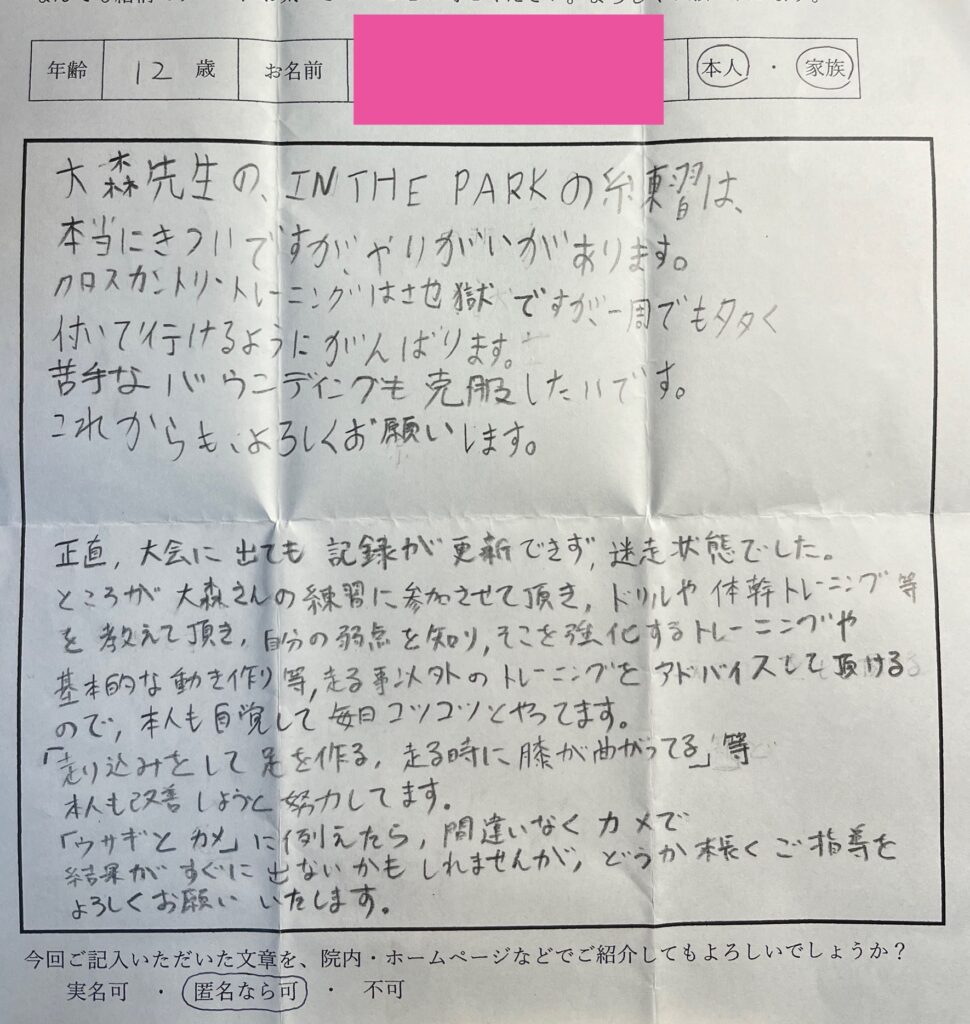 年齢 12 歳 お名前 本人 ・ 家族
大森先生の、IN THE PARKの練習は、
本当にきついですが、やりがいがあります。
クロスカントリートレーニングは地獄ですが、一周でも多く
付いて行けるようにがんばります。
苦手なバウンディングも克服したいです。
これからも、よろしくお願いします。
正直、大会に出ても記録が更新できず、迷走状態でした。
ところが大森さんの練習に参加させて頂き、ドリルや体幹トレーニング等
を教えて頂き、自分の弱点を知り、そこを強化するトレーニングや
基本的な動き作り等、走る事以外のトレーニングをアドバイスして頂ける
ので、本人も自覚して毎日コツコツとやってます。
「走り込みをして足を作る、走る時に膝が曲がってる」等
本人も改善しようと努力してます。
「ウサギとカメ」に例えたら、間違いなくカメで
結果がすぐに出ないかもしれませんが、どうか長くご指導を
よろしくお願いいたします。
今回ご記入いただいた文章を、院内・ホームページなどでご紹介してもよろしいでしょうか?
実名可 ・ 匿名なら可 ・ 不可